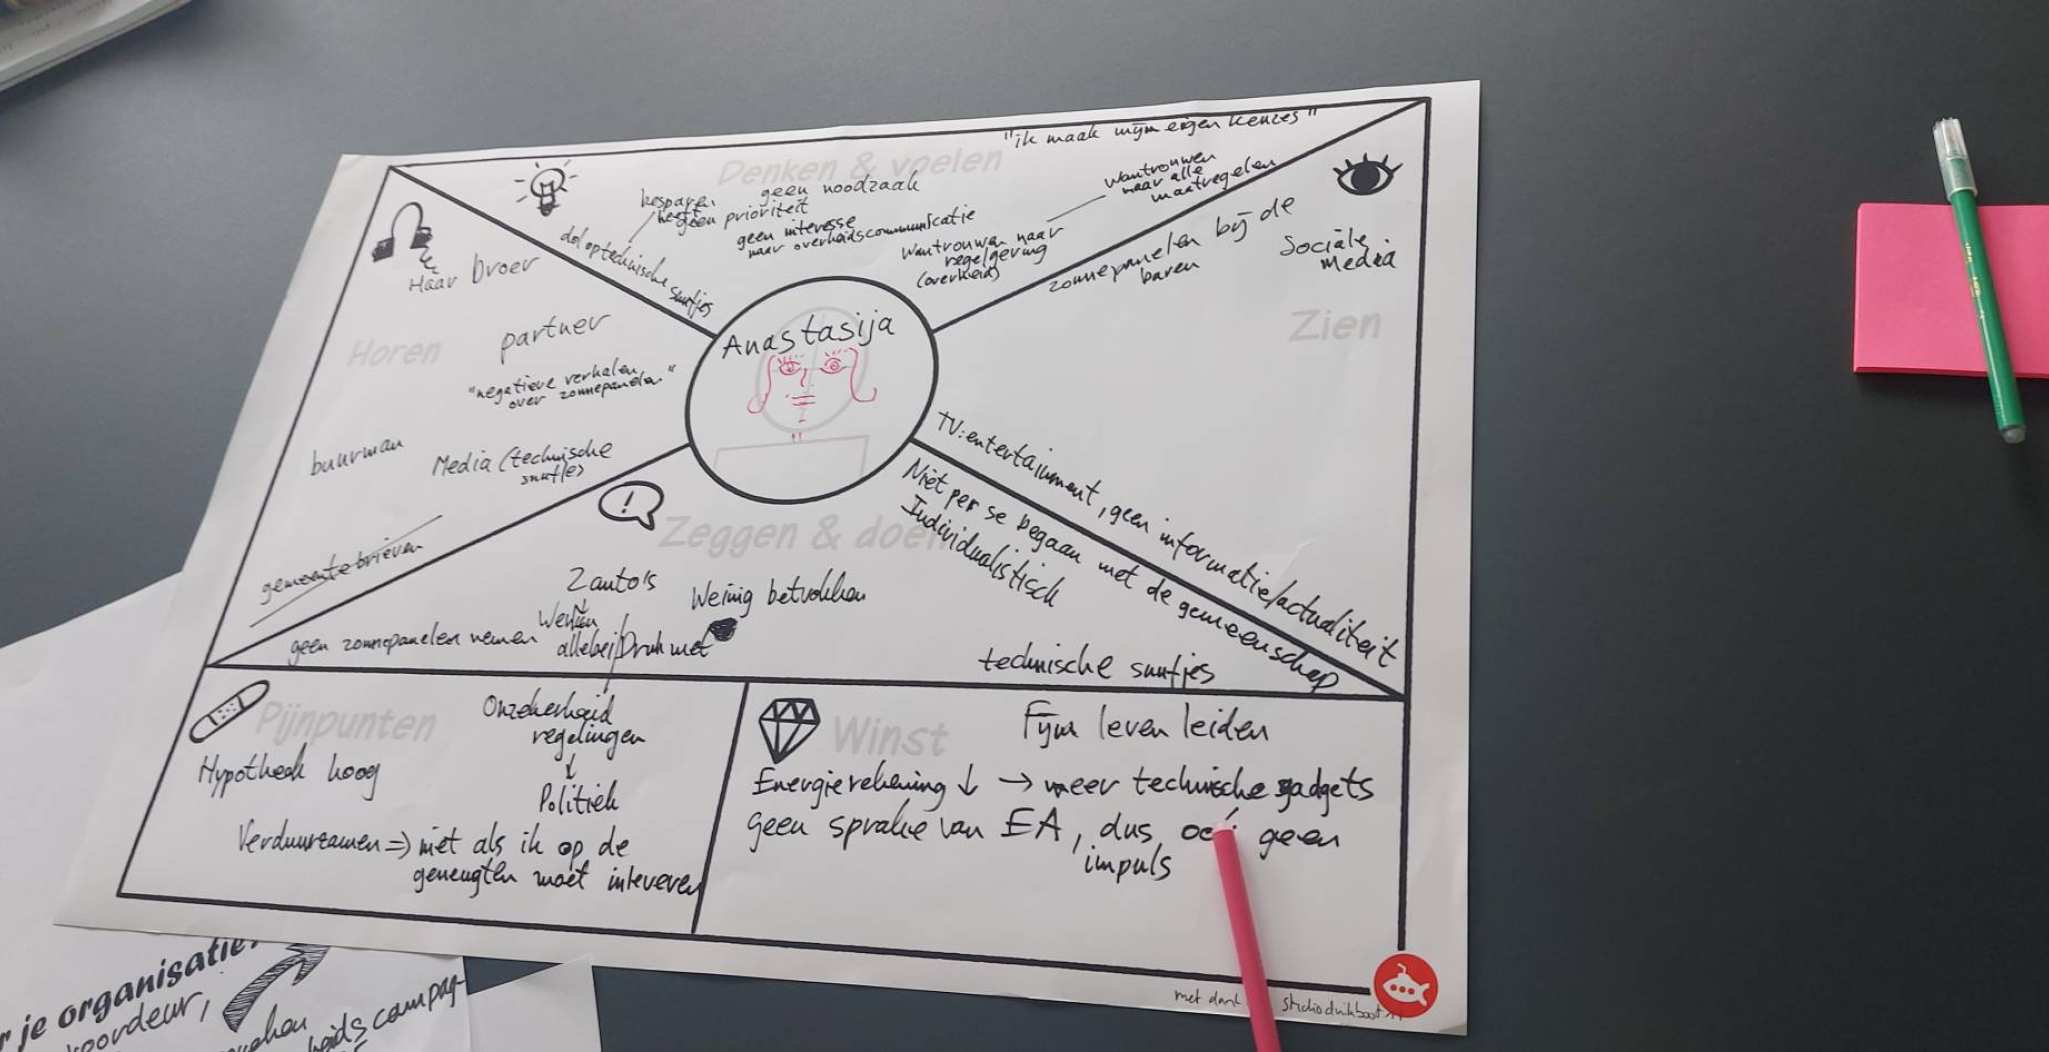 "ik maak mijn eigen keuzes"
Denken & voelen
besparen
heeft geen prioriteit
geen noodzaak
geen interesse
naar overheidscommunicatie
dol op technische snufjes
Wantrouwen naar
regelgeving
(overheid)
Wantrouwen
naar alle
maatregelen
zonnepanelen bij de
buren
Sociale
media
Zien
TV: entertainment, geen informatie/actualiteit
Haar broer
partner
Horen
"negatieve verhalen
over zonnepanelen"
buurman
Media (technische
snufjes)
gemeentebrieven
Anastasija
Zeggen & doen
Niet per se begaan met de gemeenschap
Individualistisch
2 auto's
Weinig betrokken
Werken
allebei/Druk met
geen zonnepanelen nemen
technische snufjes
Pijnpunten
Onzekerheid
regelingen
↓
Politiek
Hypotheek hoog
Verduurzamen => niet als ik op de
geneugten moet inleveren
Winst
Fijn leven leiden
Energierekening ↓ → meer technische gadgets
geen sprake van EA, dus geen
impuls
met dank
studioduikboot
je organisatie